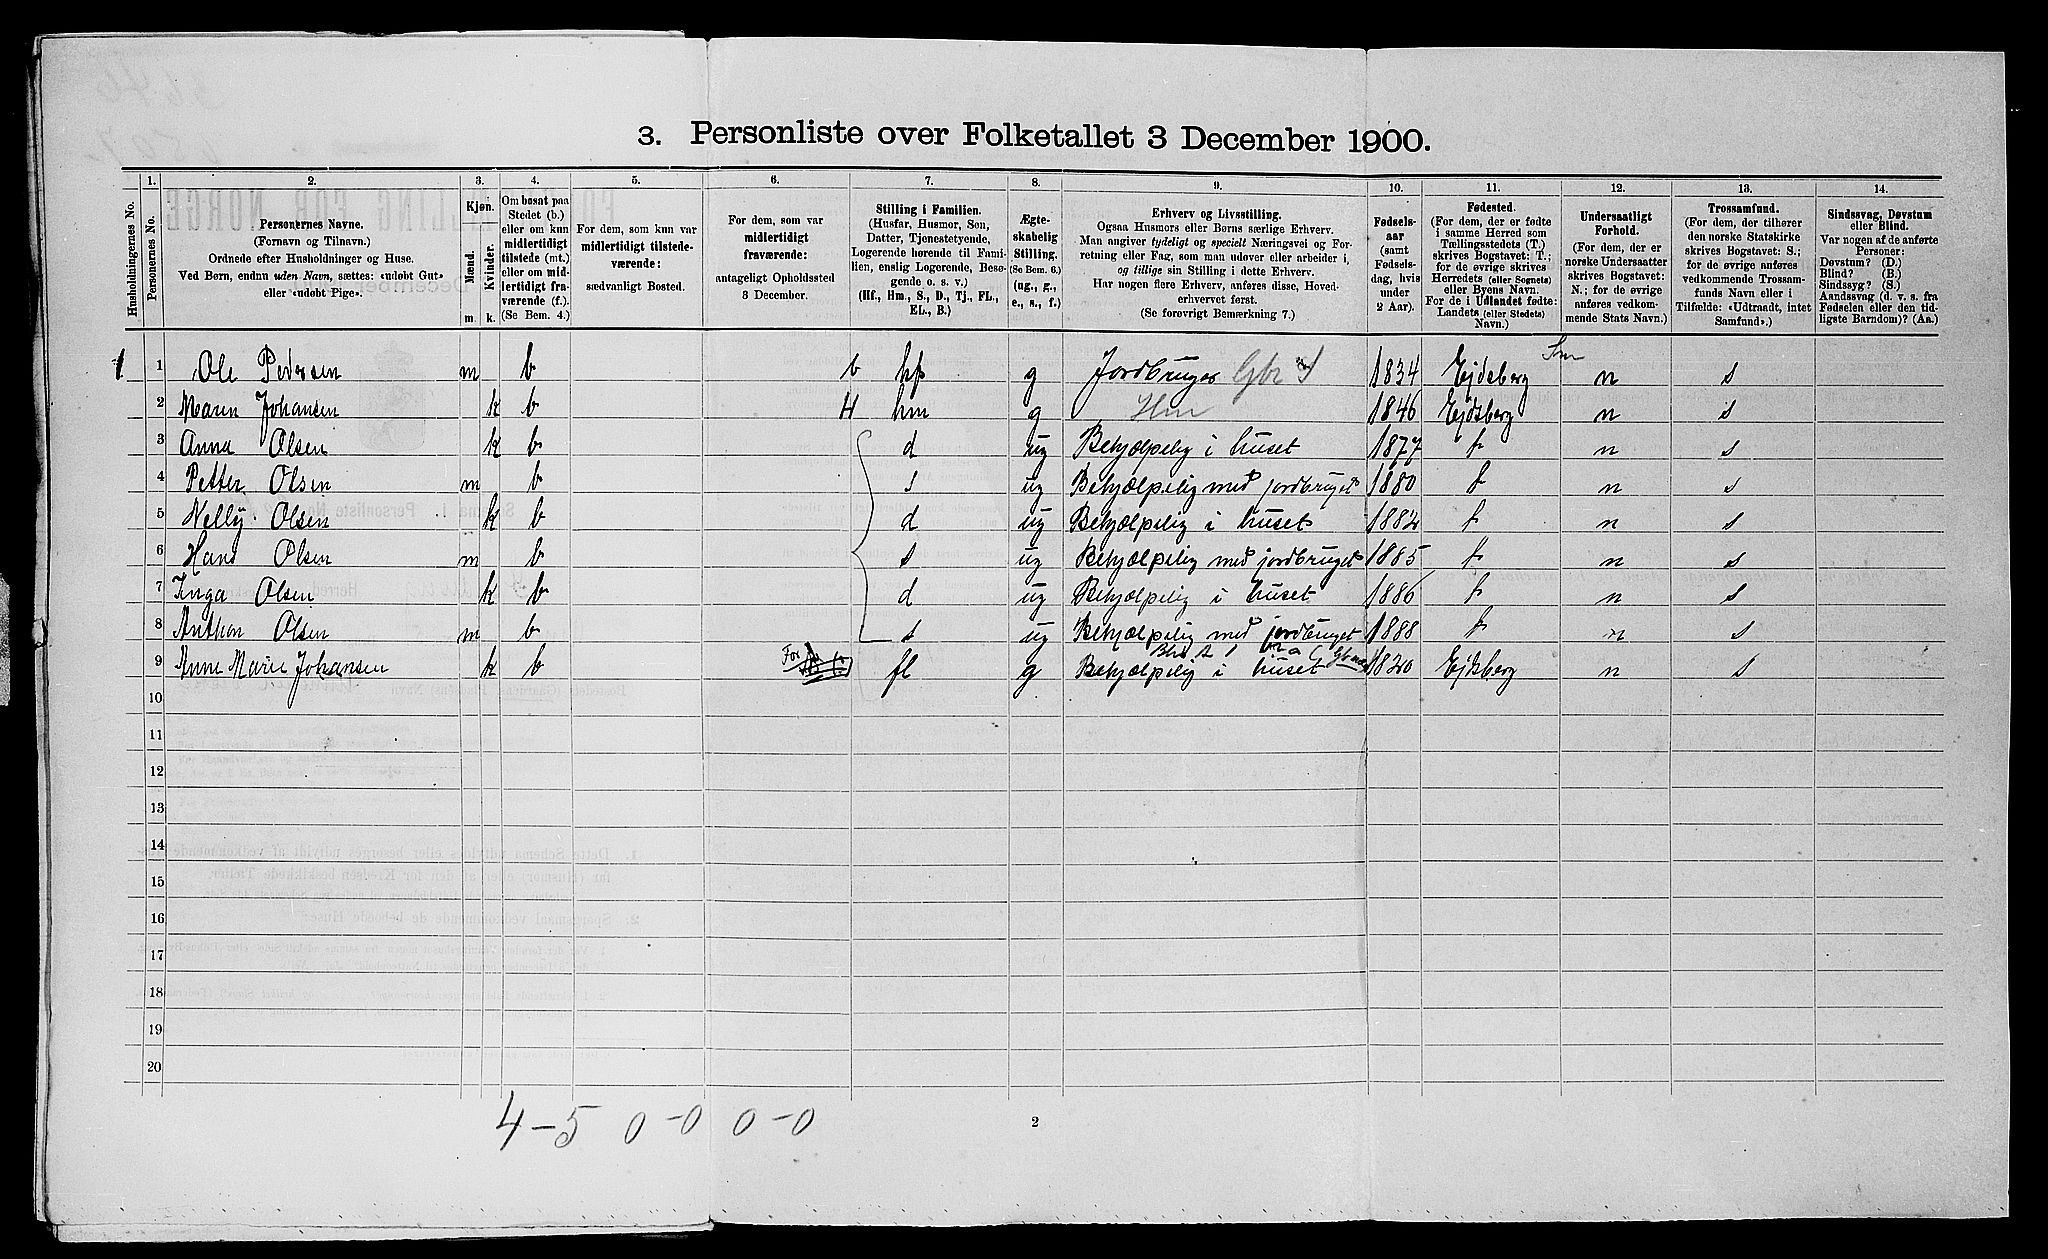 3. Personliste over Folketallet 3 December 1900.
Husholdningernes No.
1.
Personernes No.
2.
Personernes Navne.
(Fornavn og Tilnavn.)
Ordnede efter Husholdninger og Huse.
Ved Børn, endnu uden Navn, sættes: «udøbt Gut»
eller «udøbt Pige».
3.
Kjøn.
Mænd.
Kvinder.
m. k.
4.
Om bosat paa
Stedet (b.)
eller om kun
midlertidigt
tilstede (mt.)
eller om mid-
lertidigt fra-
værende (f.).
(Se Bem. 4.)
5.
For dem, som kun var
midlertidigt tilstede-
værende:
sædvanligt Bosted.
6.
For dem, som var
midlertidigt
fraværende:
antageligt Opholdssted
3 December.
7.
Stilling i Familien.
(Husfar, Husmor, Søn,
Datter, Tjenestetyende,
Logerende hørende til Fami-
lien, enslig Logerende, Besø-
gende o. s. v.)
(Hf., Hm., S., D., Tj., FL.,
EL., B.)
8.
Ægte-
skabelig
Stilling.
(Se Bem. 6.)
(ug., g.,
e., s., f.)
9.
Erhverv og Livsstilling.
Ogsaa Husmors eller Børns særlige Erhverv.
Man angiver tydeligt og specielt Næringsvei og For-
retning eller Fag, som man udøver eller arbeider i,
og tillige sin Stilling i dette Erhverv.
Har nogen flere Erhverv, anføres disse, Hoved-
erhvervet først.
(Se forøvrigt Bemærkning 7.)
10.
Fødsels-
aar
(samt
Fødsels-
dag, hvis
under
2 Aar).
11.
Fødested.
(For dem, der er fødte
i samme Herred som
Tællingsstedets (T.)
skrives Bogstavet: T.;
for de øvrige skrives
Herredets (eller Sognets)
eller Byens Navn.
For de i Udlandet fødte:
Landets (eller Stedets)
Navn.)
12.
Undersaatligt
Forhold.
(For dem, der er
norske Undersaatter
skrives Bogstavet:
N.; for de øvrige
anføres vedkom-
mende Stats Navn.)
13.
Trossamfund.
(For dem, der tilhører
den norske Statskirke
skrives Bogstavet: S.;
for de øvrige anføres
vedkommende Trossam-
funds Navn eller i
Tilfælde: «Udtraadt, intet
Samfund».)
14.
Sindssvag, Døvstum
eller Blind.
Var nogen af de anførte
Personer:
Døvstum? (D.)
Blind? (B.)
Sindssyg? (S.)
Aandssvag (d. v. s. fra
Fødselen eller den tid-
ligste Barndom)? (Aa.)
1 1 Ole Pedersen m b b hf g Jordbruger Gbr S 1834 Ejdsberg n s
2 Maren Johansen k b H hm g Hm 1846 Ejdsberg n s
3 Anna Olsen k b d ug Behjælpelig i huset 1877 t n s
4 Petter Olsen m b s ug Behjælpelig med jordbruget 1880 t n s
5 Nelly Olsen k b d ug Behjælpelig i huset 1882 t n s
6 Hans Olsen m b s ug Behjælpelig med jordbruget 1885 t n s
7 Inga Olsen k b d ug Behjælpelig i huset 1886 t n s
8 Anthon Olsen m b s ug Behjælpelig med jordbruget 1888 t n s
9 Anne Marie Johansen k b For fl g Behjælpelig i huset 1820 Ejdsberg n s
10
11
12
13
14
15
16
17
18
19
20
4-5 0-0 0-0
2